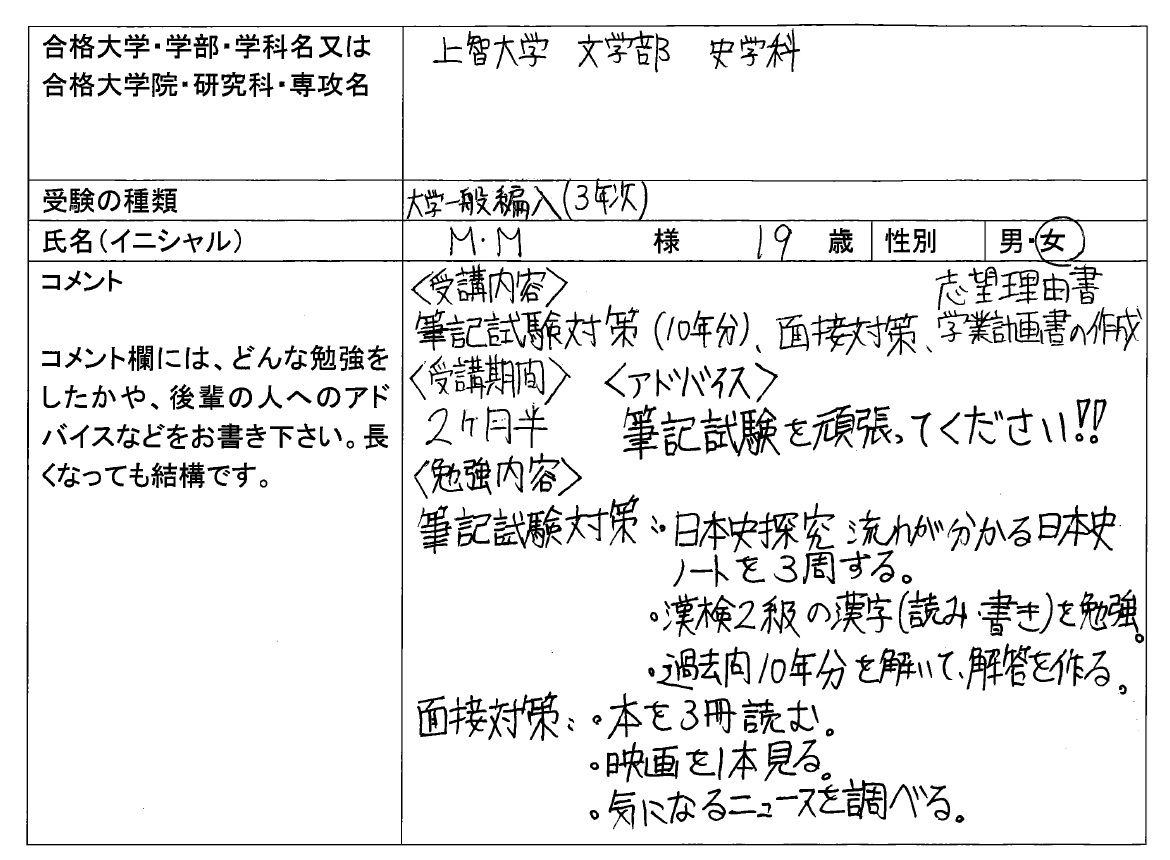 合格大学・学部・学科名又は
合格大学院・研究科・専攻名
上智大学 文学部 史学科
受験の種類
大学一般編入(3年次)
氏名(イニシャル)
M・M 様 19 歳 性別 男・女
コメント
コメント欄には、どんな勉強を
したかや、後輩の人へのアド
バイスなどをお書き下さい。長
くなっても結構です。
〈受講内容〉
筆記試験対策(10年分)、面接対策、志望理由書
学業計画書の作成
〈受講期間〉 〈アドバイス〉
2ヶ月半 筆記試験を頑張ってください!!
〈勉強内容〉
筆記試験対策:・日本史探究 流れが分かる日本史
ノートを3周する。
・漢検2級の漢字(読み・書き)を勉強。
・過去問10年分を解いて、解答を作る。
面接対策:・本を3冊読む。
・映画を1本見る。
・気になるニュースを調べる。